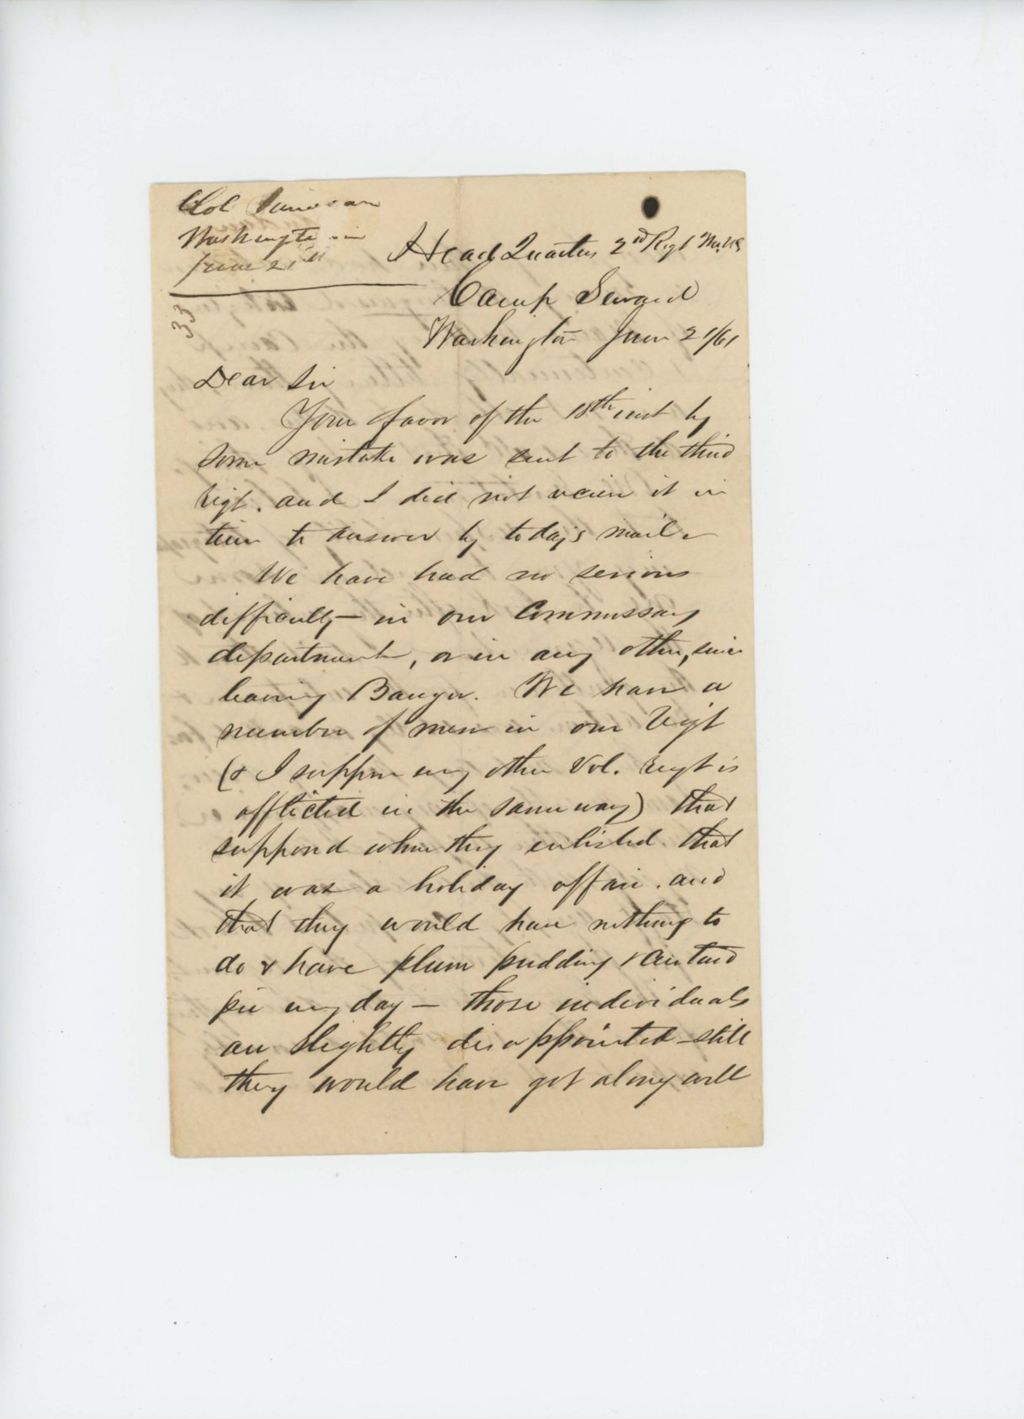 Col Jameson
Washington
June 21st
33
Head Quarters 2nd Regt
Camp Seward
Washington June 21/61
Dear Sir
Your favor of the 18th inst by
some mistake was sent to the third
regt. and I did not receive it in
time to answer by today's mail.
We have had no serious
difficulty — in our Commissary
department, or in any other, since
leaving Bangor. We have a
number of men in our Regt
(& I suppose every other Vol. regt is
afflicted in the same way) that
supposed when they enlisted that
it was a holiday affair. and
that they would have nothing to
do & have plum pudding & custard
pie every day — those individuals
are slightly disappointed — still
they would have got along well